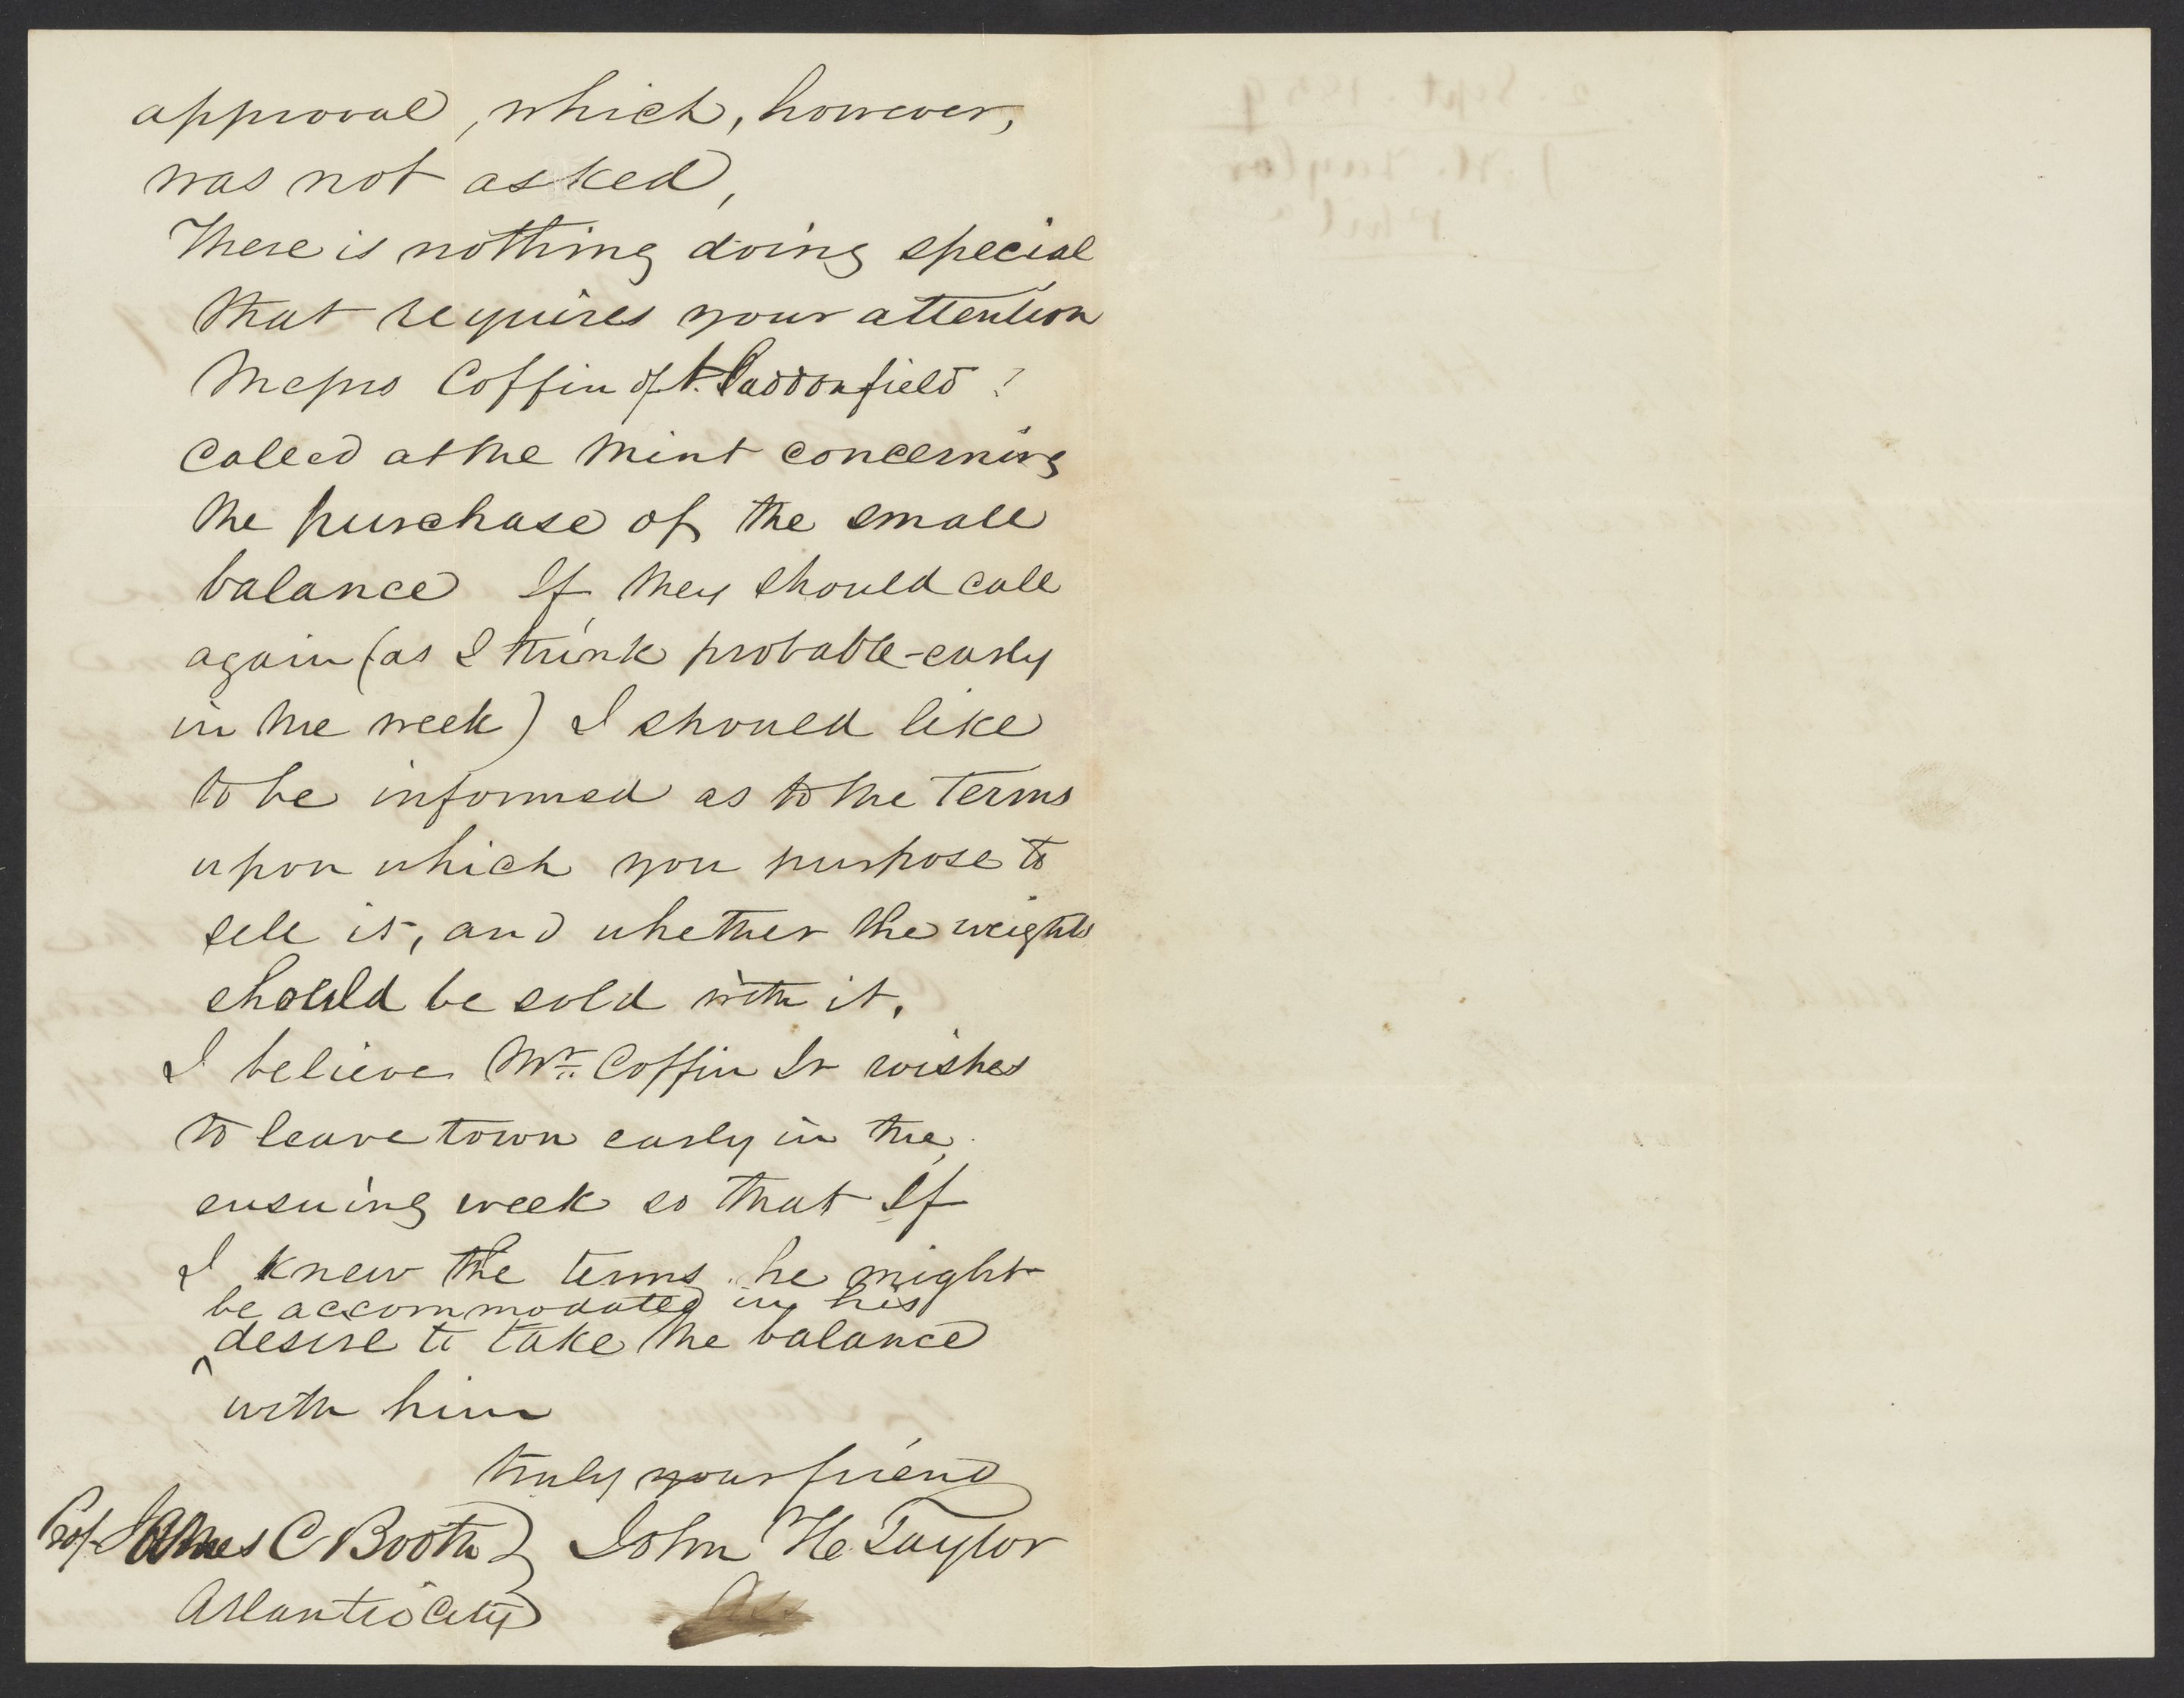 approval, which, however,
was not asked,
There is nothing doing special
that requires your attention
Messrs Coffin of Haddonfield?
called at the Mint concerning
the purchase of the small
balance If they should call
again (as I think probable-early
in the week) I should like
to be informed as to the terms
upon which you purpose to
sell it, and whether the weights
should be sold with it.
I believe Mr. Coffin Jr wishes
to leave town early in the
ensuing week so that If
I knew the terms he might
be accommodated in his
^desire to take the balance
with him
truly your friend
Prof James C Booth John H Taylor
Atlantic City
Ass
2. Sept. 1859
J. H. Taylor
Phila